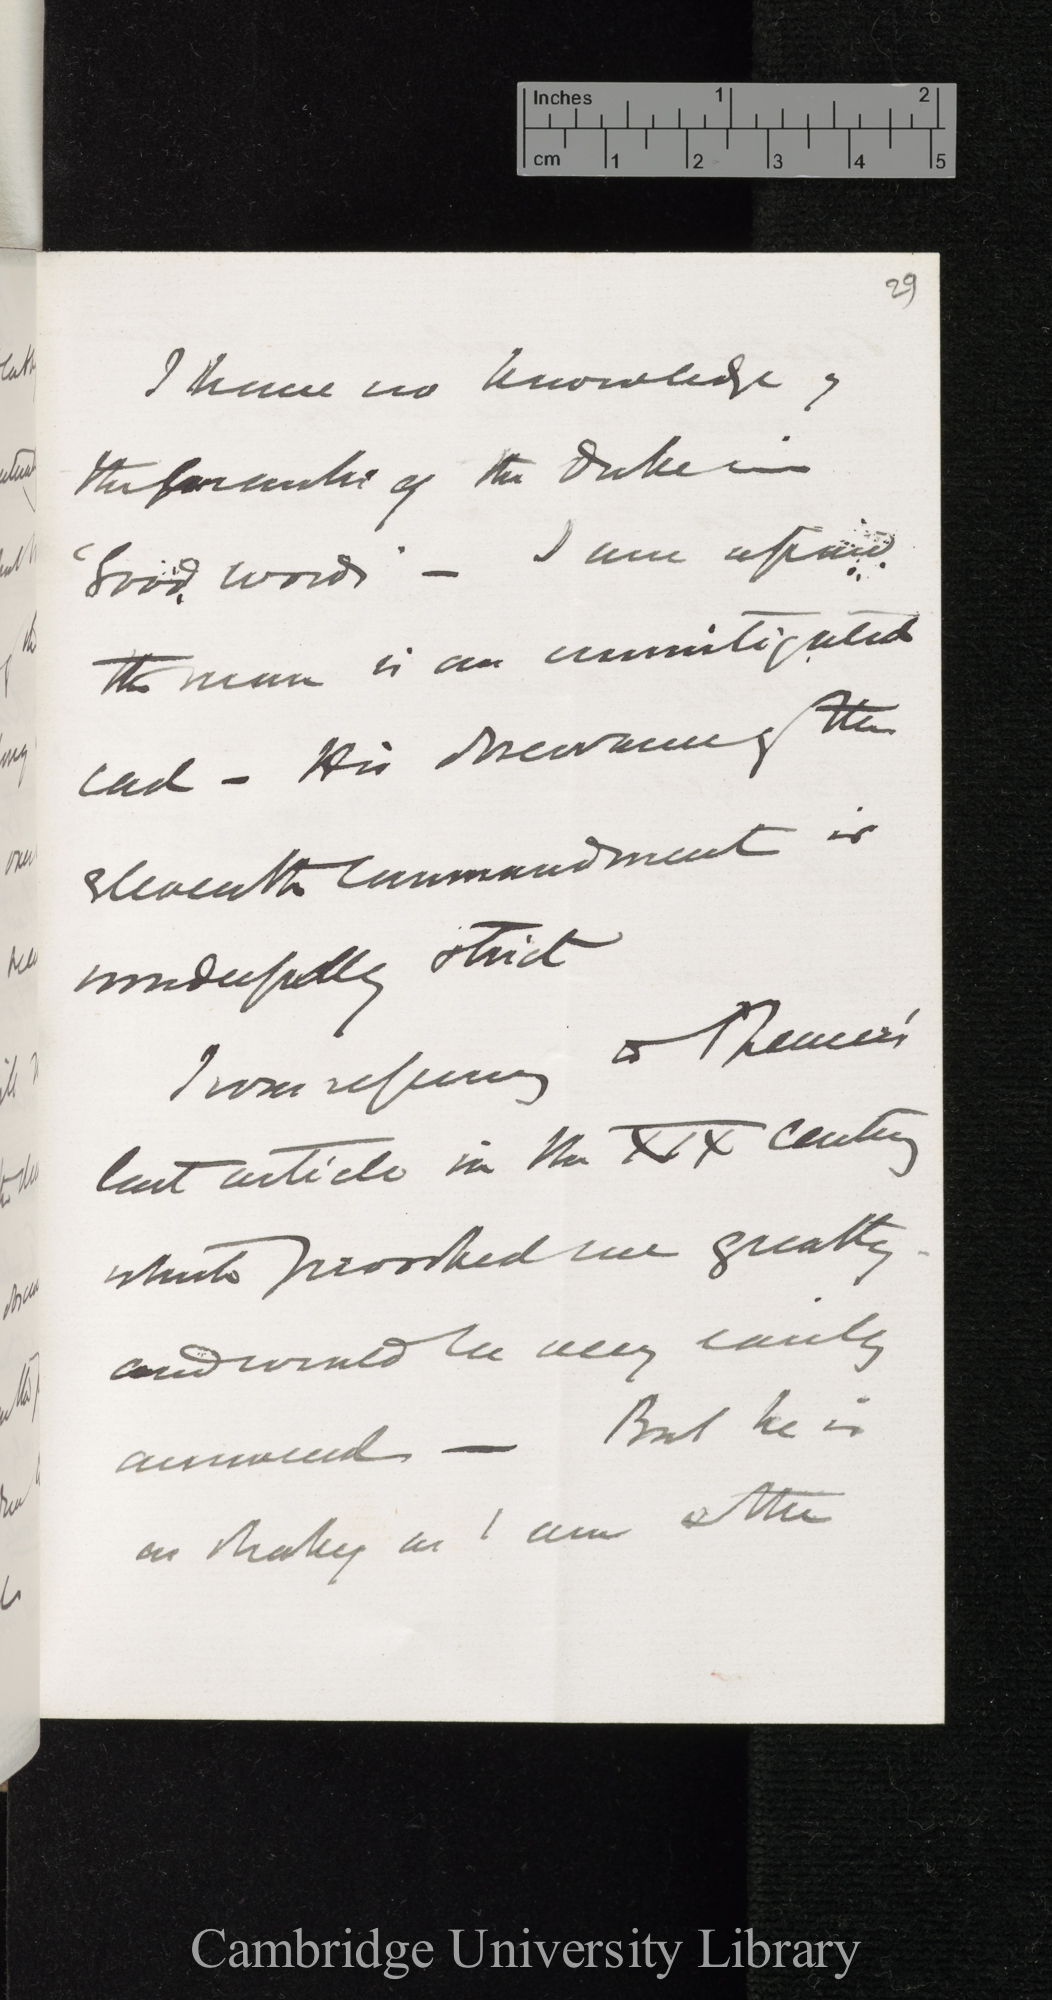 Inches 1 2
cm 1 2 3 4 5
29
I have no knowledge of
the remarks of the Duke in
'Good words' – I am afraid
the man is an unmitigated
cad – His observance of the
eleventh commandment is
wonderfully strict
I was referring to Spencer's
last article in the XIX Century
which provoked me greatly
and would be very easily
answered — But he is
as shaky as I am & the
Cambridge University Library